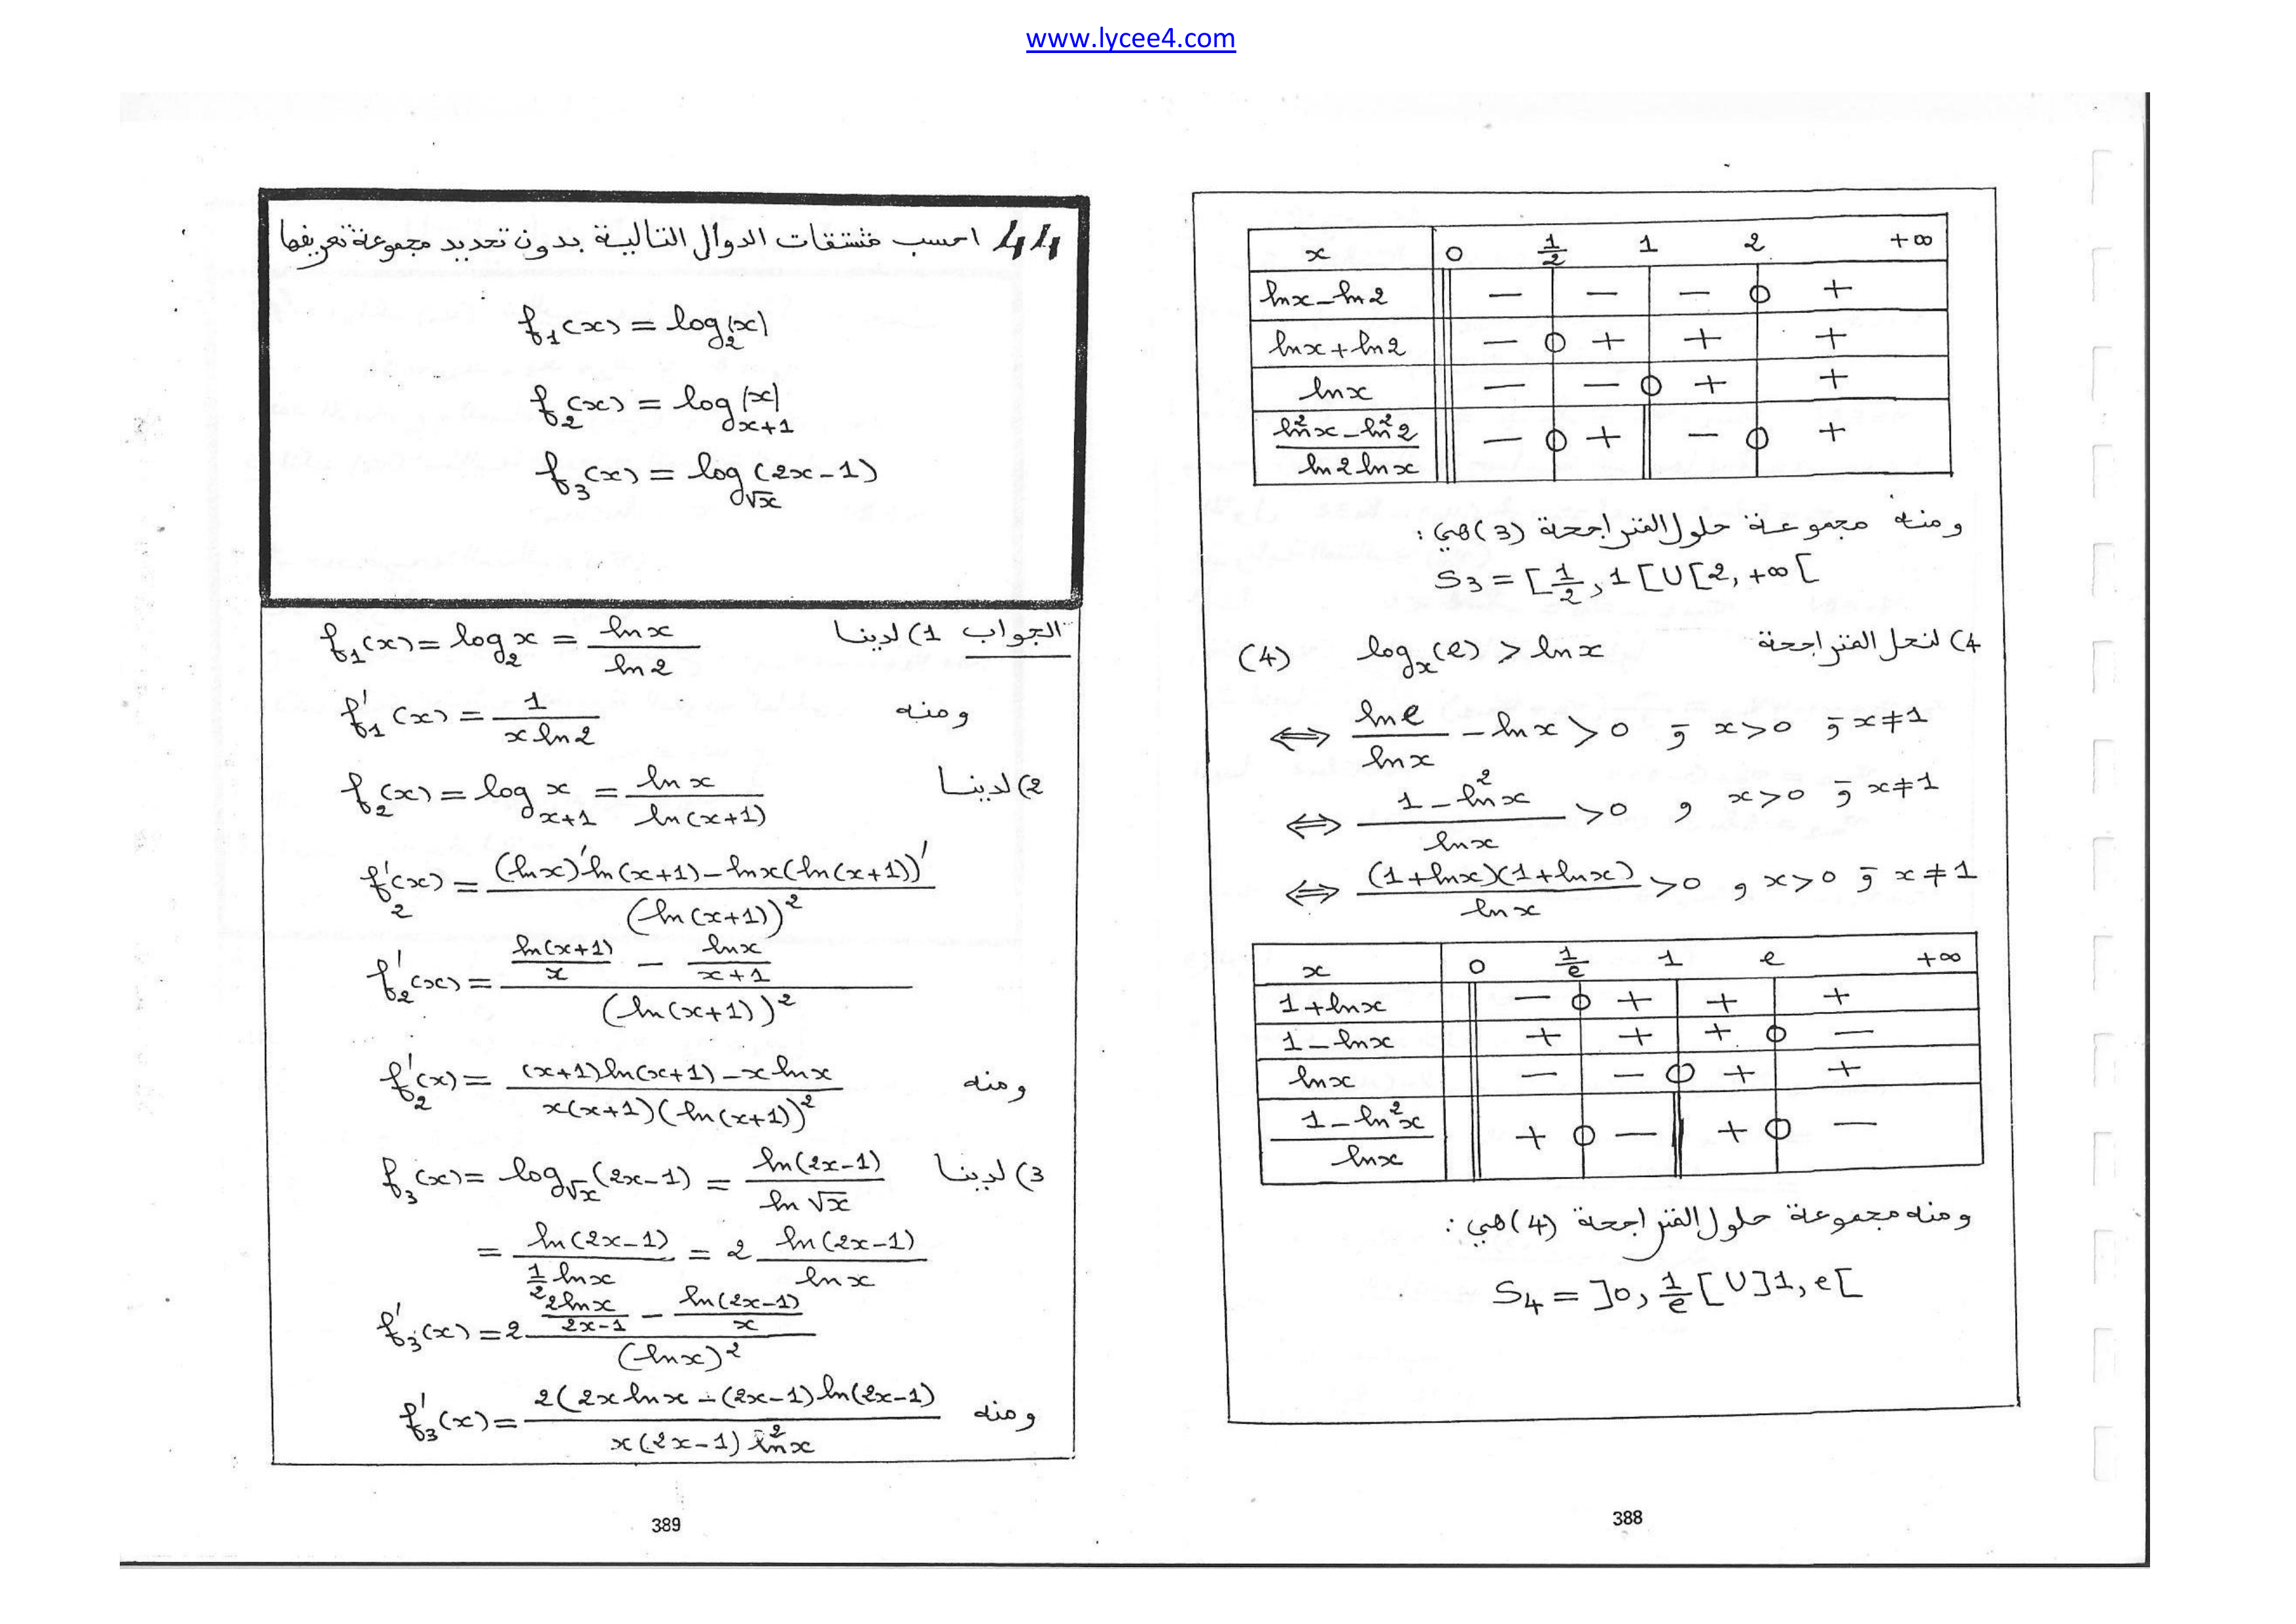 www.lycee4.com
x 0 1/2 1 2 +∞
lnx - ln2 − − − 0 +
lnx + ln2 − 0 + + +
lnx − − 0 + +
(ln²x - ln²2)/(ln2 lnx) − 0 + − 0 +
ومنه مجموعة حلول المتراجحة (3) هي:
S3 = [1/2, 1[ U [2, +∞[
4) لنحل المتراجحة log_x(e) > lnx (4)
⟺ lne/lnx - lnx > 0 و x>0 و x≠1
⟺ (1 - ln²x)/lnx > 0 , x>0 و x≠1
⟺ (1+lnx)(1+lnx)/lnx > 0 , x>0 و x≠1
x 0 1/e 1 e +∞
1+lnx − 0 + + +
1-lnx + + + 0 −
lnx − − 0 + +
(1-ln²x)/lnx + 0 − + 0 −
ومنه مجموعة حلول المتراجحة (4) هي:
S4 = ]0, 1/e[ U ]1, e[
388
44 احسب مشتقات الدوال التالية بدون تحديد مجموعة تعريفها
f1(x) = log_2|x|
f2(x) = log_{x+1}|x|
f3(x) = log_√x (2x-1)
الجواب 1) لدينا f1(x) = log_2 x = lnx/ln2
ومنه f'1(x) = 1/(x ln2)
2) لدينا f2(x) = log_{x+1} x = lnx/ln(x+1)
f'2(x) = ((lnx)'ln(x+1) - lnx(ln(x+1))')/(ln(x+1))²
f'2(x) = (ln(x+1)/x - lnx/(x+1))/(ln(x+1))²
ومنه f'2(x) = ((x+1)ln(x+1) - x lnx)/(x(x+1)(ln(x+1))²)
3) لدينا f3(x) = log_√x (2x-1) = ln(2x-1)/ln√x
= ln(2x-1)/(1/2 lnx) = 2 ln(2x-1)/lnx
f'3(x) = 2 (2lnx/(2x-1) - ln(2x-1)/x)/(lnx)²
ومنه f'3(x) = 2(2x lnx - (2x-1)ln(2x-1)/(x(2x-1)ln²x)
389